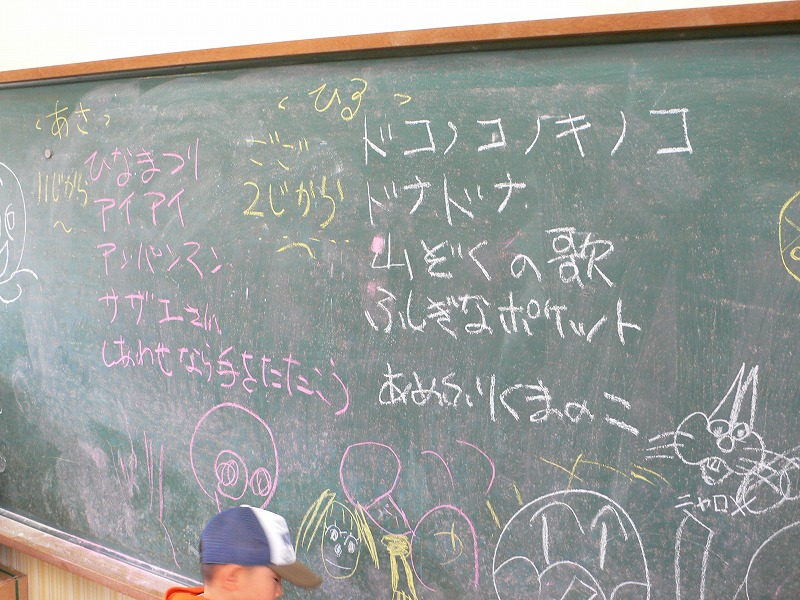 <あさ>
11じから
～
ひなまつり
アイアイ
アンパンマン
サザエさん
しあわせなら手をたたこう
<ひる>
ごご
2じから
～
ドコノコノキノコ
ドナドナ
山ぞくの歌
ふしぎなポケット
あめふりくまのこ
ニャロメ